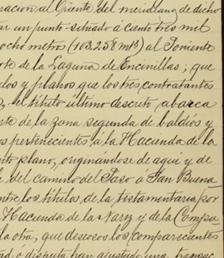 nacion al Oriente del meridiano de dicho
ar un punto situado á ciento tres mil
ocho metros (103.258 mts) al Poniente
orte de la Laguna de Encinillas; que
dos y planos que los tres contratantes
el título último descrito, abarca
rte de la zona segunda de baldíos y
os pertenecientes á la Hacienda de la
nto plano, originándose de aquí y de
te del camino del Paso á San Buena
ntre los títulos, de la testamentaría, por
Hacienda de la Nariz y de la Compa
la otra, que deseosos los comparecientes
ad ó disputa han ajustado una